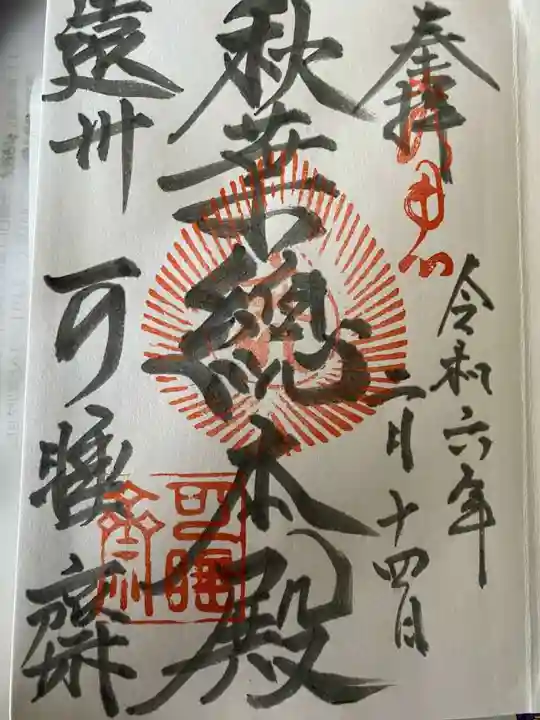 奉拝
令和六年
二月十四日
秋葉總本殿
遠州 可睡齋
可睡齋印